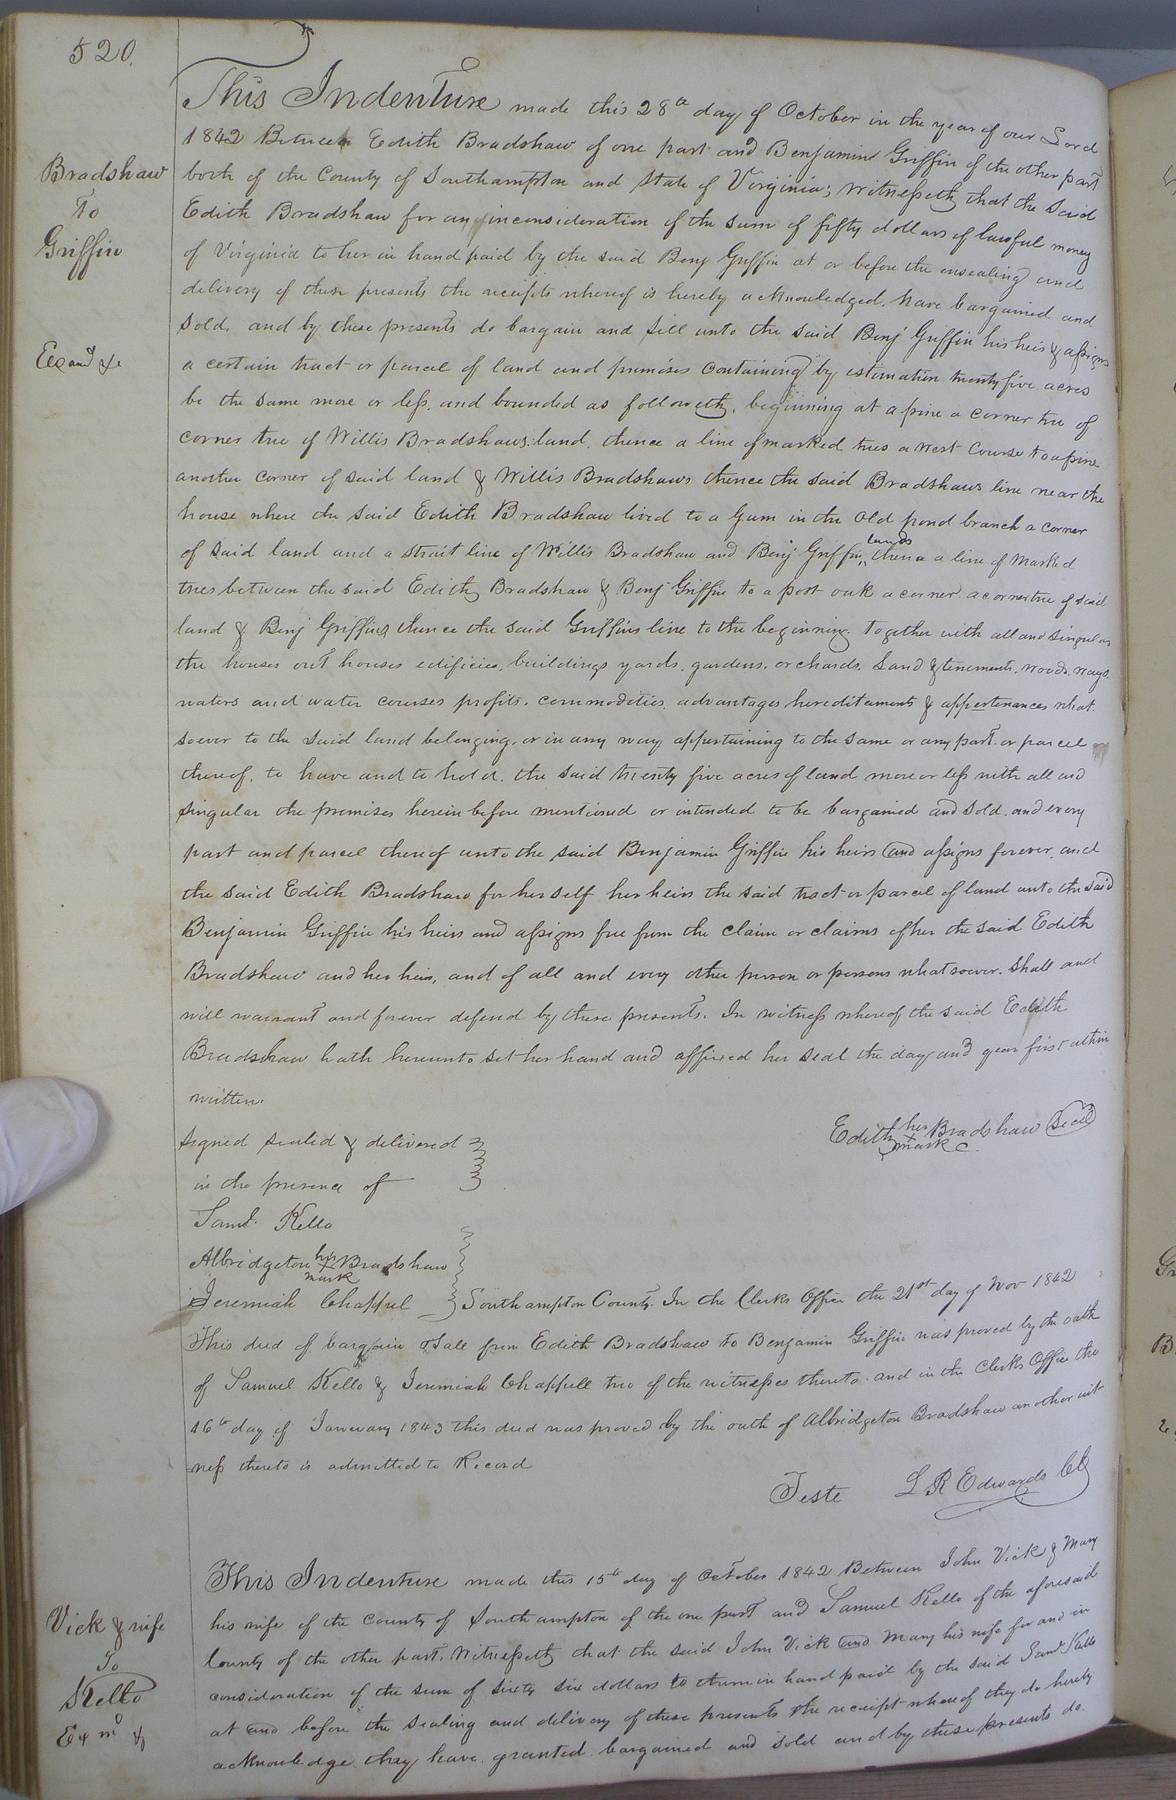 520.
This Indenture made this 28th day of October in the year of our Lord
1842 Between Edith Bradshaw of one part and Benjamin Griffin of the other part
Bradshaw
To
Griffin
both of the County of Southampton and State of Virginia; Witnesseth that the said
Edith Bradshaw for and inconsideration of the sum of fifty dollars of lawful money
of Virginia to her in hand paid by the said Benj Griffin at or before the ensealing and
delivery of these presents the receipts whereof is hereby acknowledged, have bargained and
Sold, and by these presents do bargain and sell unto the said Benj Griffin his heirs & assigns
Exand &c
a certain tract or parcel of land and premises containing by estimation twenty five acres
be the same more or less, and bounded as followeth, beginning at a pine a corner tree of
corner tree of Willis Bradshaws land, thence a line of marked trees a west Course to a pine
another corner of said land & Willis Bradshaws thence the said Bradshaws line near the
house where the said Edith Bradshaw lived to a Gum in the Old pond branch a corner
of said land and a strait line of Willis Bradshaw and Benj Griffin lands thence a line of marked
trees between the said Edith Bradshaw & Benj Griffin to a post oak a corner a corner tree of said
land & Benj Griffins, thence the said Griffins line to the beginning. Together with all and singular
the houses out houses edificies, buildings yards, gardens, orchards, Land & tenements, woods, ways,
waters and water courses profits, commodities, advantages hereditaments & appertenances what
soever to the said land belonging, or in any way appertaining to the same or any part or parcel
thereof, to have and to hold, the said twenty five acres of land more or less with all and
singular the premises herein before mentioned or intended to be bargained and sold, and every
part and parcel thereof unto the said Benjamin Griffin his heirs and assigns forever, and
the said Edith Bradshaw for her self her heirs the said tract or parcel of land unto the said
Benjamin Griffin his heirs and assigns free from the claim or claims of her the said Edith
Bradshaw and her heirs, and of all and every other person or persons whatsoever. Shall and
will warrant and forever defend by these presents. In witness whereof the said Edith
Bradshaw hath hereunto set her hand and affixed her seal the day and year first
written.
Edith her Bradshaw Seal
mark
Signed sealed & delivered
in the presence of
Saml. Kello
Albridgeton his Bradshaw
mark
Jeremiah Chappel
Southampton County. In the Clerks Office the 21st day of Nov 1842
This deed of bargain & Sale from Edith Bradshaw to Benjamin Griffin was proved by the oath
of Samuel Kello & Jeremiah Chappell two of the witnesses thereto. and in the Clerks Office the
16th day of January 1843 this deed was proved by the oath of Albridgeton Bradshaw another wit
ness thereto is admitted to Record
Teste L R Edwards Clk
This Indenture made this 15th day of October 1842 Between John Vick & Mary
Vick & wife
To
Kello
Exmd &
his wife of the County of Southampton of the one part and Samuel Kello of the aforesaid
County of the other part. Witnesseth that the said John Vick and Mary his wife for and in
consideration of the sum of sixty six dollars to them in hand paid by the said Saml Kello
at and before the sealing and delivery of these presents the receipt whereof they do hereby
acknowledge, they have granted bargained and sold and by these presents do